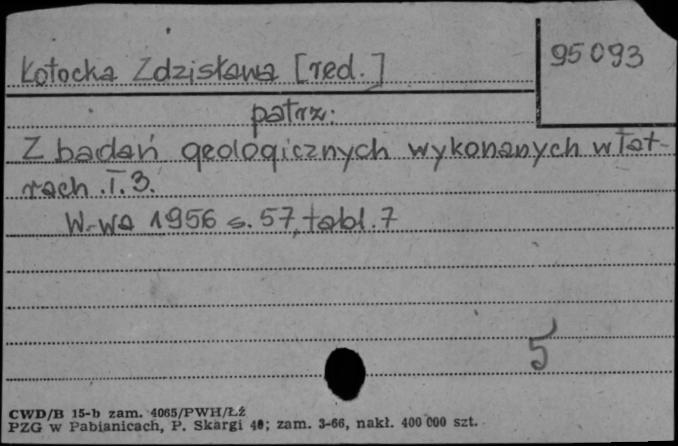 Kołocka Zdzisława [red.]
95093
patrz:
Z badań geologicznych wykonanych w Tat-
rach. T. 3.
W-wa 1956 s. 57, tabl. 7
5
CWD/B 15-b zam. 4065/PWH/ŁŹ
PZG w Pabianicach, P. Skargi 40; zam. 3-66, nakł. 400 000 szt.